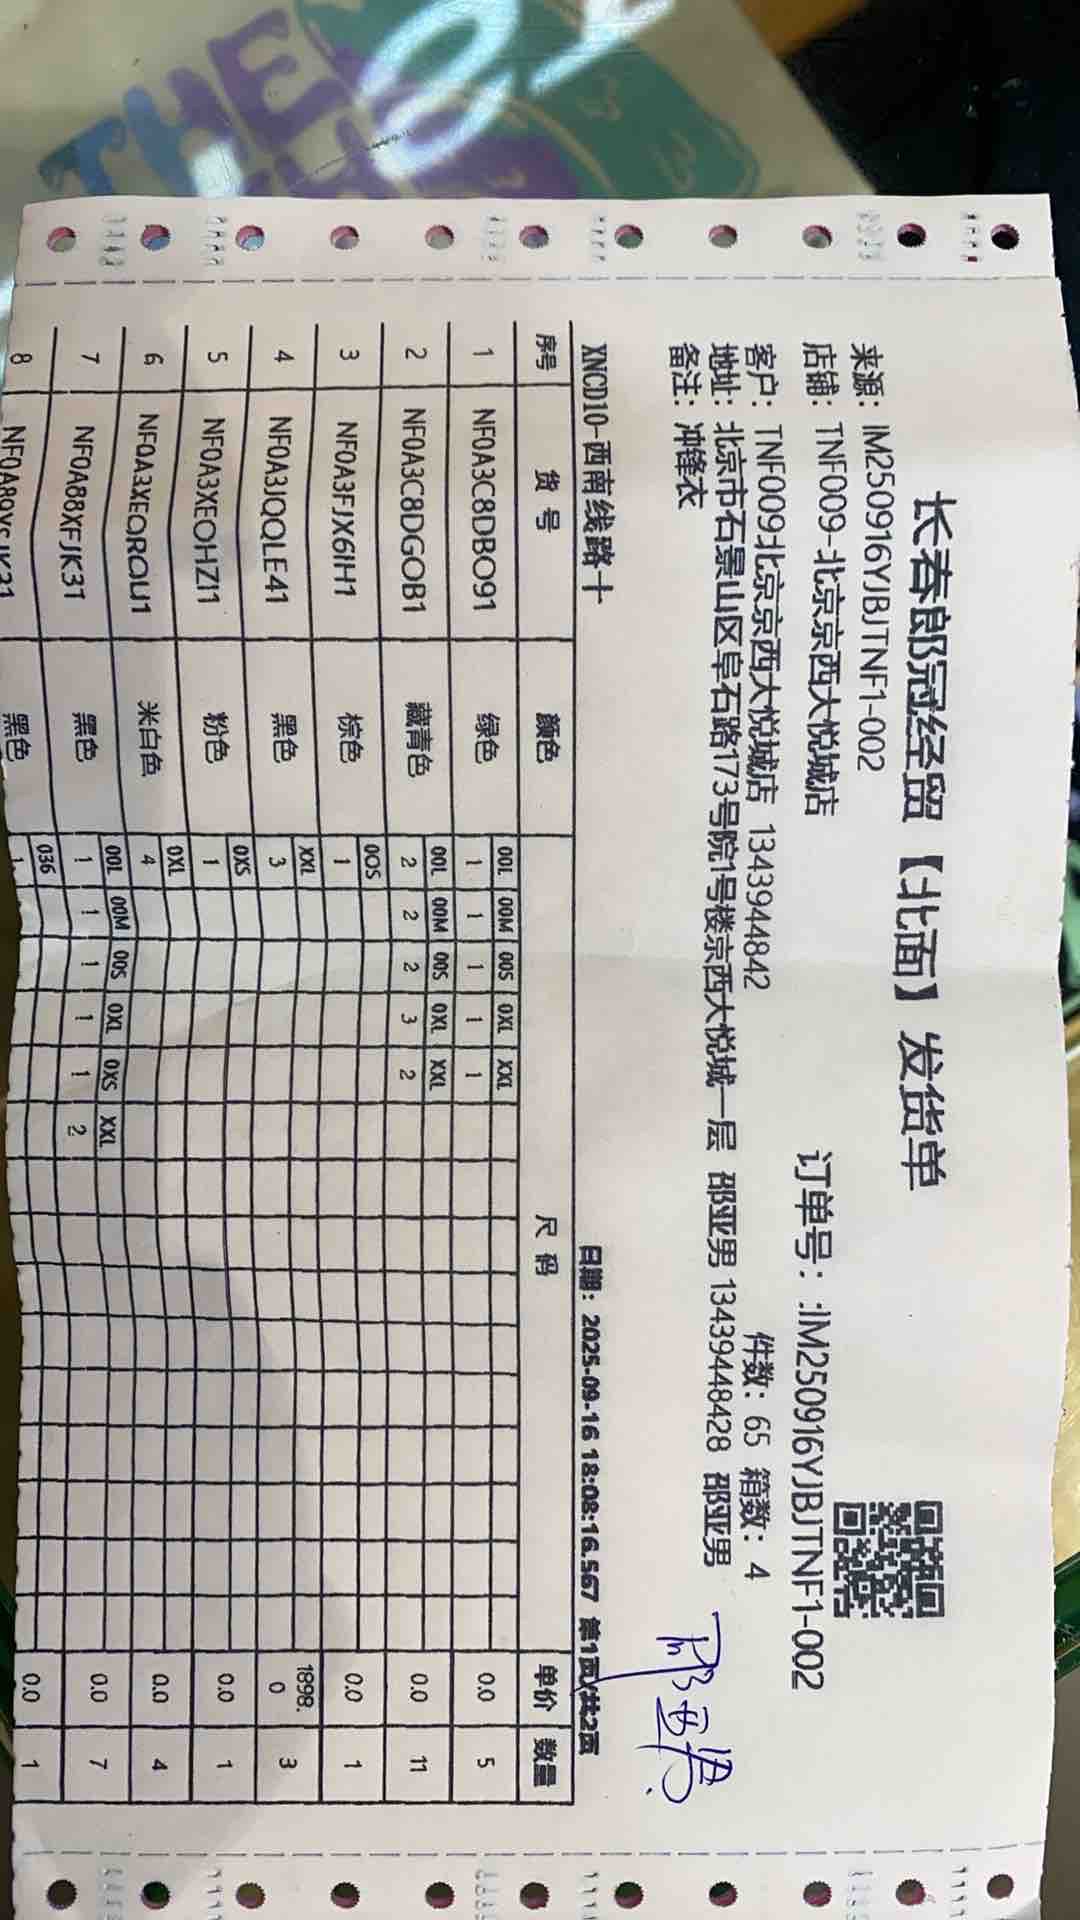 长春郎冠经贸【北面】发货单
来源：IM250916YJBJTNF1-002
店铺：TNF009-北京京西大悦城店 订单号：:IM250916YJBJTNF1-002
客户：TNF009北京京西大悦城店 134394​4842 件数：65 箱数：4
地址：北京市石景山区阜石路173号院1号楼京西大悦城一层 邵亚男 13439448428 邵亚男
备注：冲锋衣
XNCD10-西南线路十 日期：2025-09-16 18:08:16.567 第1页/共2页
序号 货号 颜色 尺码 单价 数量
00L 00M 00S 0XL XXL
1 NF0A3C8DBO91 绿色 1 1 1 1 1 0.0 5
00L 00M 00S 0XL XXL
2 NF0A3C8DGOB1 藏青色 2 2 2 3 2 0.0 11
00S
3 NF0A3FJX6IH1 棕色 1 0.0 1
XXL
4 NF0A3JQQLE41 黑色 3 1898.0 3
0XS
5 NF0A3XEOHZI1 粉色 1 0.0 1
0XL
6 NF0A3XEQRQU1 米白色 4 0.0 4
00L 00M 00S 0XL 0XS XXL
7 NF0A88XFJK3T 黑色 1 1 1 1 1 2 0.0 7
036
8 黑色 1 0.0 1